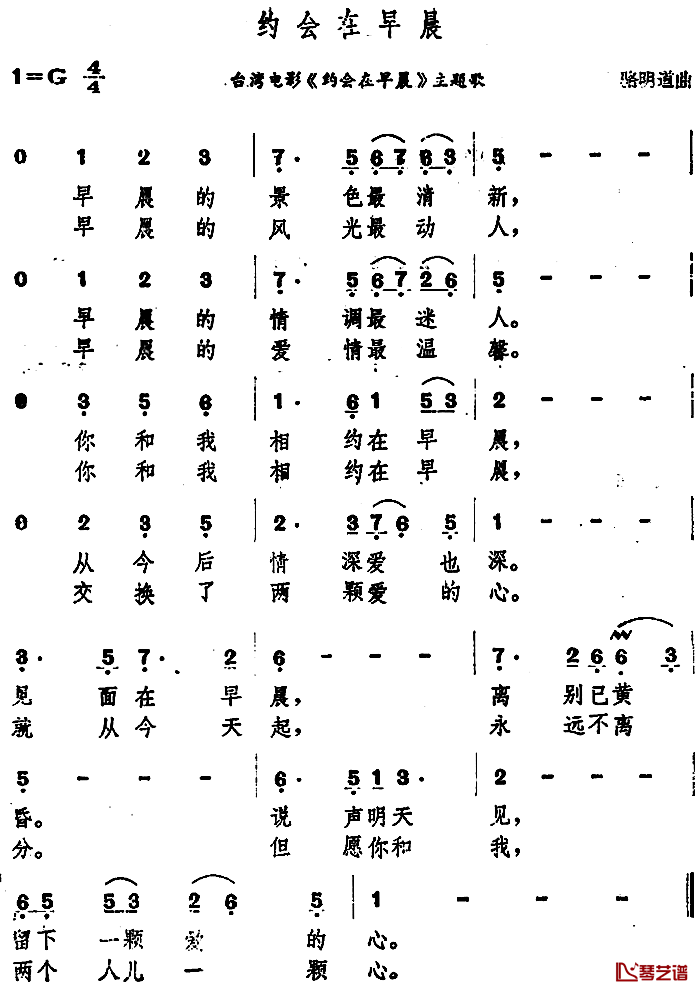 约会在早晨
1=G 4/4 台湾电影《约会在早晨》主题歌 骆明道曲
0 1 2 3 7· 5 6 7 6 3 5 - - -
早晨的景色最清新,
早晨的风光最动人,
0 1 2 3 7· 5 6 7 2 6 5 - - -
早晨的情调最迷人。
早晨的爱情最温馨。
0 3 5 6 1· 6 1 5 3 2 - - -
你和我相约在早晨,
你和我相约在早晨,
0 2 3 5 2· 3 7 6 5 1 - - -
从今后情深爱也深。
交换了两颗爱的心。
3· 5 7· 2 6 - - - 7· 2 6 6 3
见面在早晨, 离别已黄
就从今天起, 永远不离
5 - - - 6· 5 1 3· 2 - - -
昏。 说声明天见,
分。 但愿你和我,
6 5 5 3 2 6 5 1 - - -
留下一颗爱的心。
两个人儿一颗心。
琴艺谱